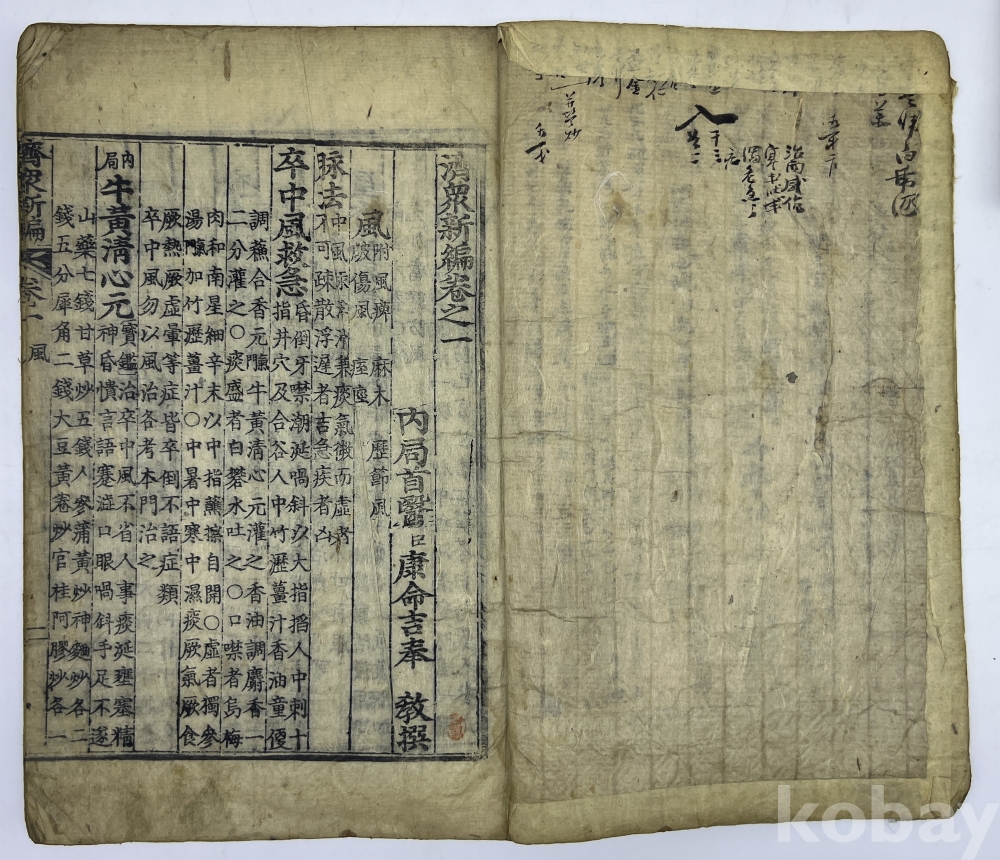 濟衆新編卷之一
內局首醫臣康命吉奉 敎撰
風 附風痺 麻木 歷節風
破傷風 痓痙
脉法 中風脉浮滑兼痰氣微而虛者
不可疎散浮遲者吉急疾者凶
卒中風救急 昏倒牙噤潮涎喎斜以大指搯人中刺十
指井穴及合谷人中竹瀝薑汁香油童便
調蘸合香元隨牛黃淸心元灌之香油調麝香一
二分灌之○痰盛者白礬水吐之○口噤者烏梅
肉和南星細辛末以中指蘸擦自開○虛者獨參
湯隨加竹瀝薑汁○中暑中寒中濕痰厥氣厥食
厥熱厥虛暈等症皆卒倒不語症類
卒中風勿以風治各考本門治之
內局 牛黃淸心元 寶鑑治卒中風不省人事痰涎壅塞精
神昏憒言語蹇澁口眼喎斜手足不遂
山藥七錢甘草炒五錢人參蒲黃炒神麯炒各二
錢五分犀角二錢大豆黃卷炒官桂阿膠炒各一
濟衆新編 卷一 風
kobay